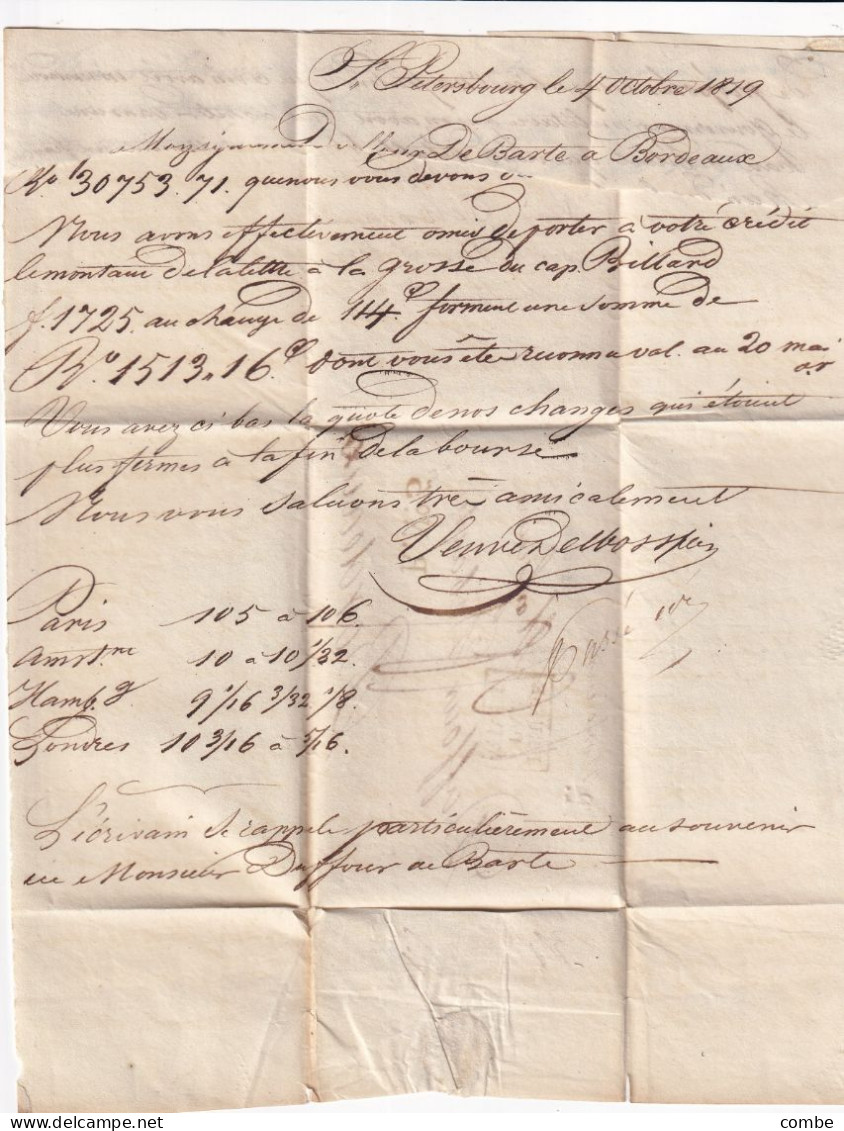 St. Petersbourg le 4 Octobre 1819
De Barte a Bordeaux
Ro. 30753.71. que nous vous devons
Nous avons effectivement omis de porter à votre crédit
le montant de la lettre à la grosse du cap. Billard
f. 1725. au change de 114. forment une somme de
Ro. 1513.16. dont vous êtes reconnu val. au 20 mai
Vous avez ci bas la quote de nos changes qui étoient
plus fermes à la fin de la bourse
Nous vous saluons très amicalement
Veuve
Paris 105 à 106.
Amstm. 10 à 10 1/32.
Hambg. 9 1/16 3/32 1/8.
Londres 10 3/16 à 5/16.
L'écrivain se rappele particulièrement au souvenir
de Monsieur Duffour de Barte
delcampe.net
combe